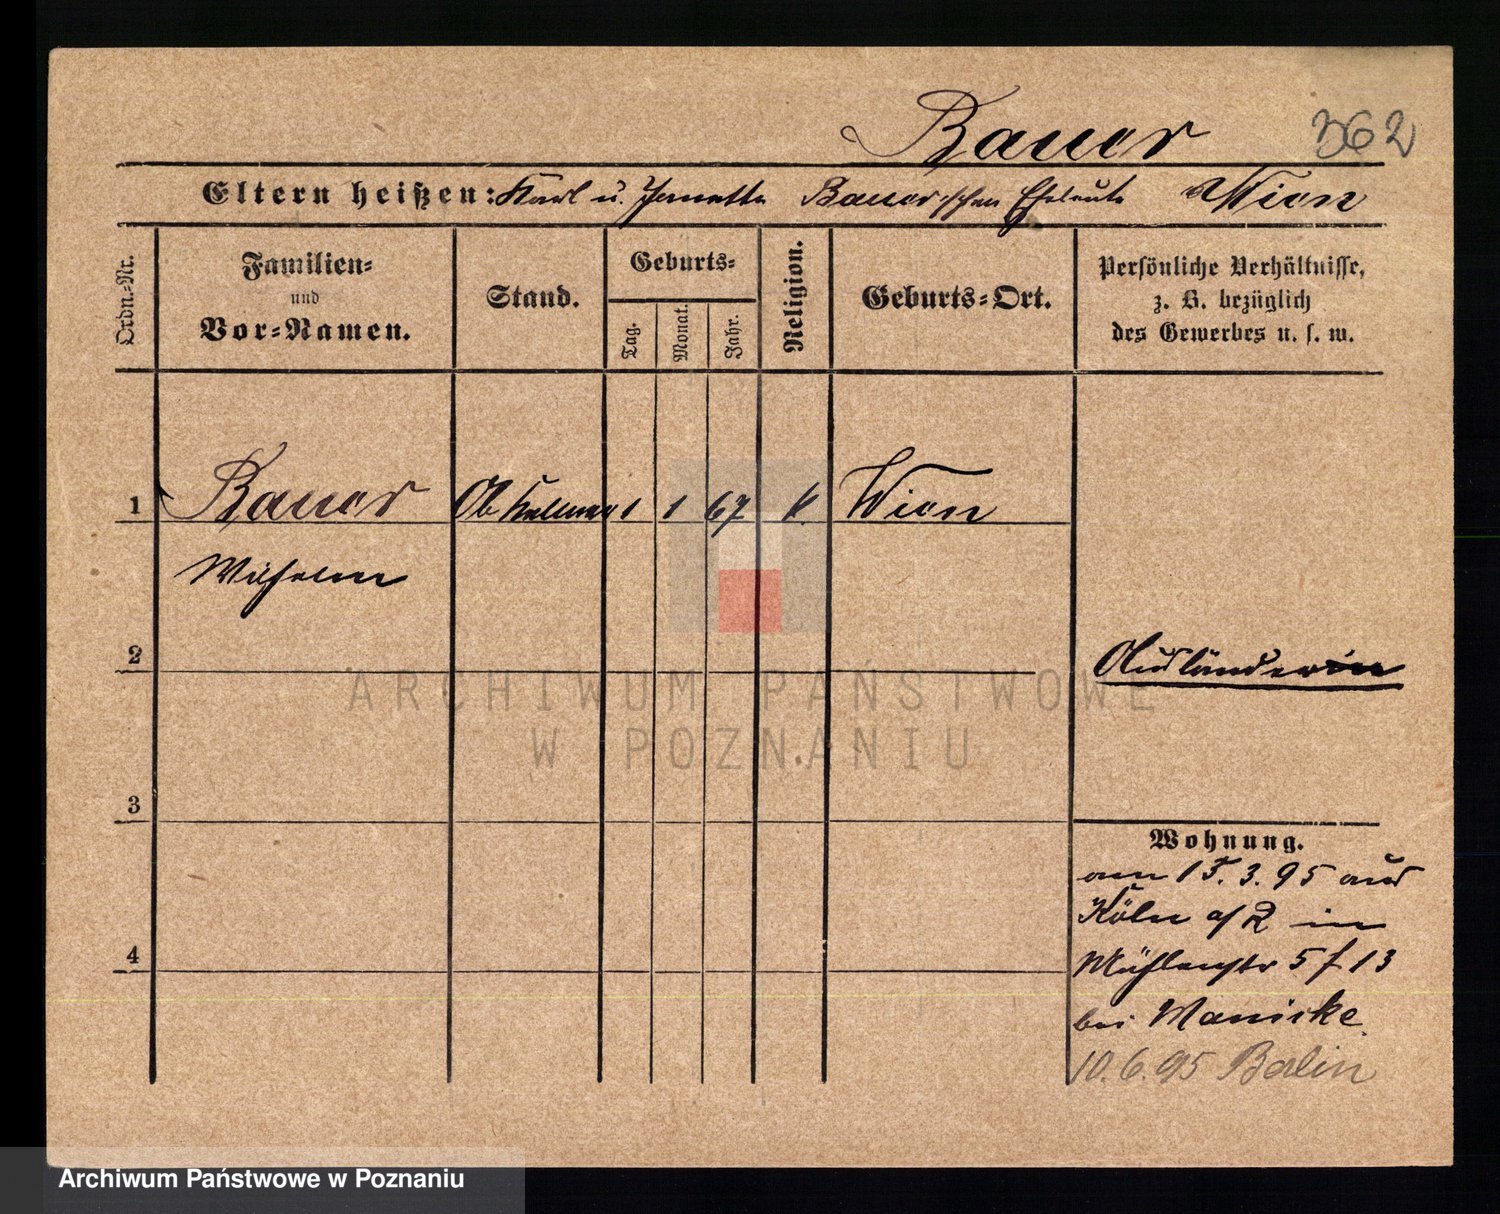 Bauer 362
Eltern heißen: Karl u. Jeanette Bauer'schen Eheleute Wien
Ordn.-Nr.
Familien-
und
Vor-Namen.
Stand.
Geburts-
Tag.
Monat.
Jahr.
Religion.
Geburts-Ort.
Persönliche Verhältnisse,
z. B. bezüglich
des Gewerbes u. s. w.
1 Bauer Ob Kellner 1 1 67 k. Wien
Wilhelm
2
Ausländer
ARCHIWUM PAŃSTWOWE
W POZNANIU
3
Wohnung.
am 15.3.95 aus
Köln a/R in
4
Mühlenstr 5 f 13
bei Manicke
10.6.95 Berlin
Archiwum Państwowe w Poznaniu